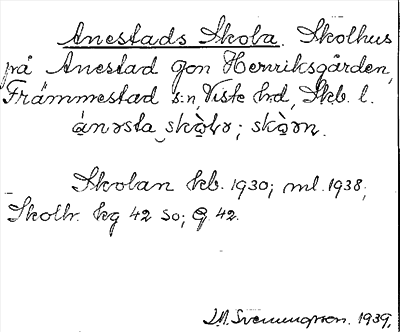 Anestads Skola. Skolhus
på Anestad Gon Henriksgården,
Främmestad s:n, Viste hrd, Skb. l.
ánəsta skò̀lə; skò̀ən.
Skolan kb. 1930; ml. 1938;
Skolhr. kg 42 So; G 42.
J.A. Svenungsson. 1939.